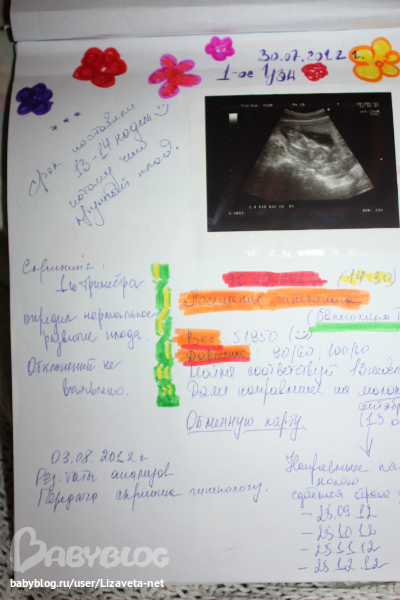 30.07.2012 г.
1-ое УЗИ
* * *
Срок поставили
13-14 недель
потому что
крупный плод.
Скрининг:
1го триместра
определил нормальное
развитие плода.
Отклонений не
выявлено.
Посещение гинеколога
Вес: 51850
Давление: 90/60; 100/60
Матка соответствует 13 недел
Дали направление на
Обменную карту.
03.08.2012 г
Рез-таты анализов
Передача скрининга гинекологу.
Направление на
сдается строго
- 25.09.12
- 25.10.12
- 25.11.12
- 25.12.12
BABYBLOG
babyblog.ru/user/Lizaveta-net